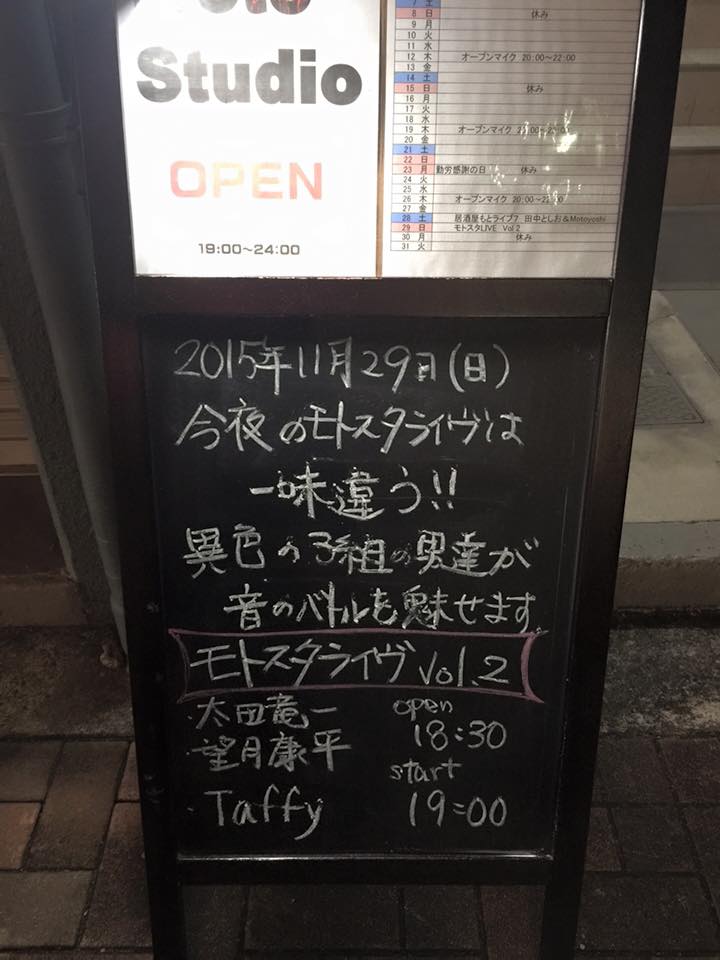 Studio
OPEN
19:00~24:00
7 土
8 日 休み
9 月
10 火
11 水
12 木 オープンマイク 20:00~22:00
13 金
14 土
15 日 休み
16 月
17 火
18 水
19 木 オープンマイク 20:00~22:00
20 金
21 土
22 日
23 月 勤労感謝の日 休み
24 火
25 水
26 木 オープンマイク 20:00~22:00
27 金
28 土 居酒屋もとライブ7 田中としお&Motoyoshi
29 日 モトスタLIVE Vol 2
30 月 休み
31 火
2015年11月29日(日)
今夜のモトスタライヴは
一味違う!!
異色の3組の男達が
音のバトルを魅せます。
モトスタライヴ Vol.2
・太田竜一 open
・望月康平 18:30
start
・Taffy 19:00